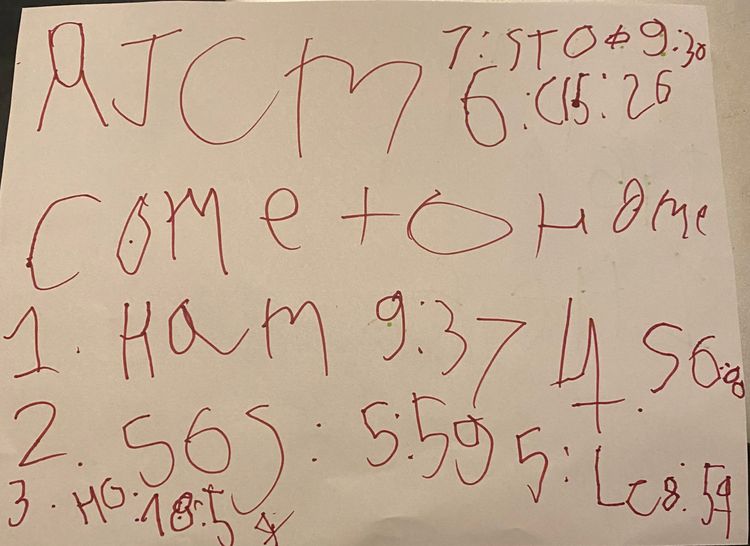 AJCM
7: STOP 9:30
6: C15:26
COMe tO HOMe
1. HaM 9:37
4. S6:
2. S6S: 5:59
5: LC8:59
3. HO:18:5